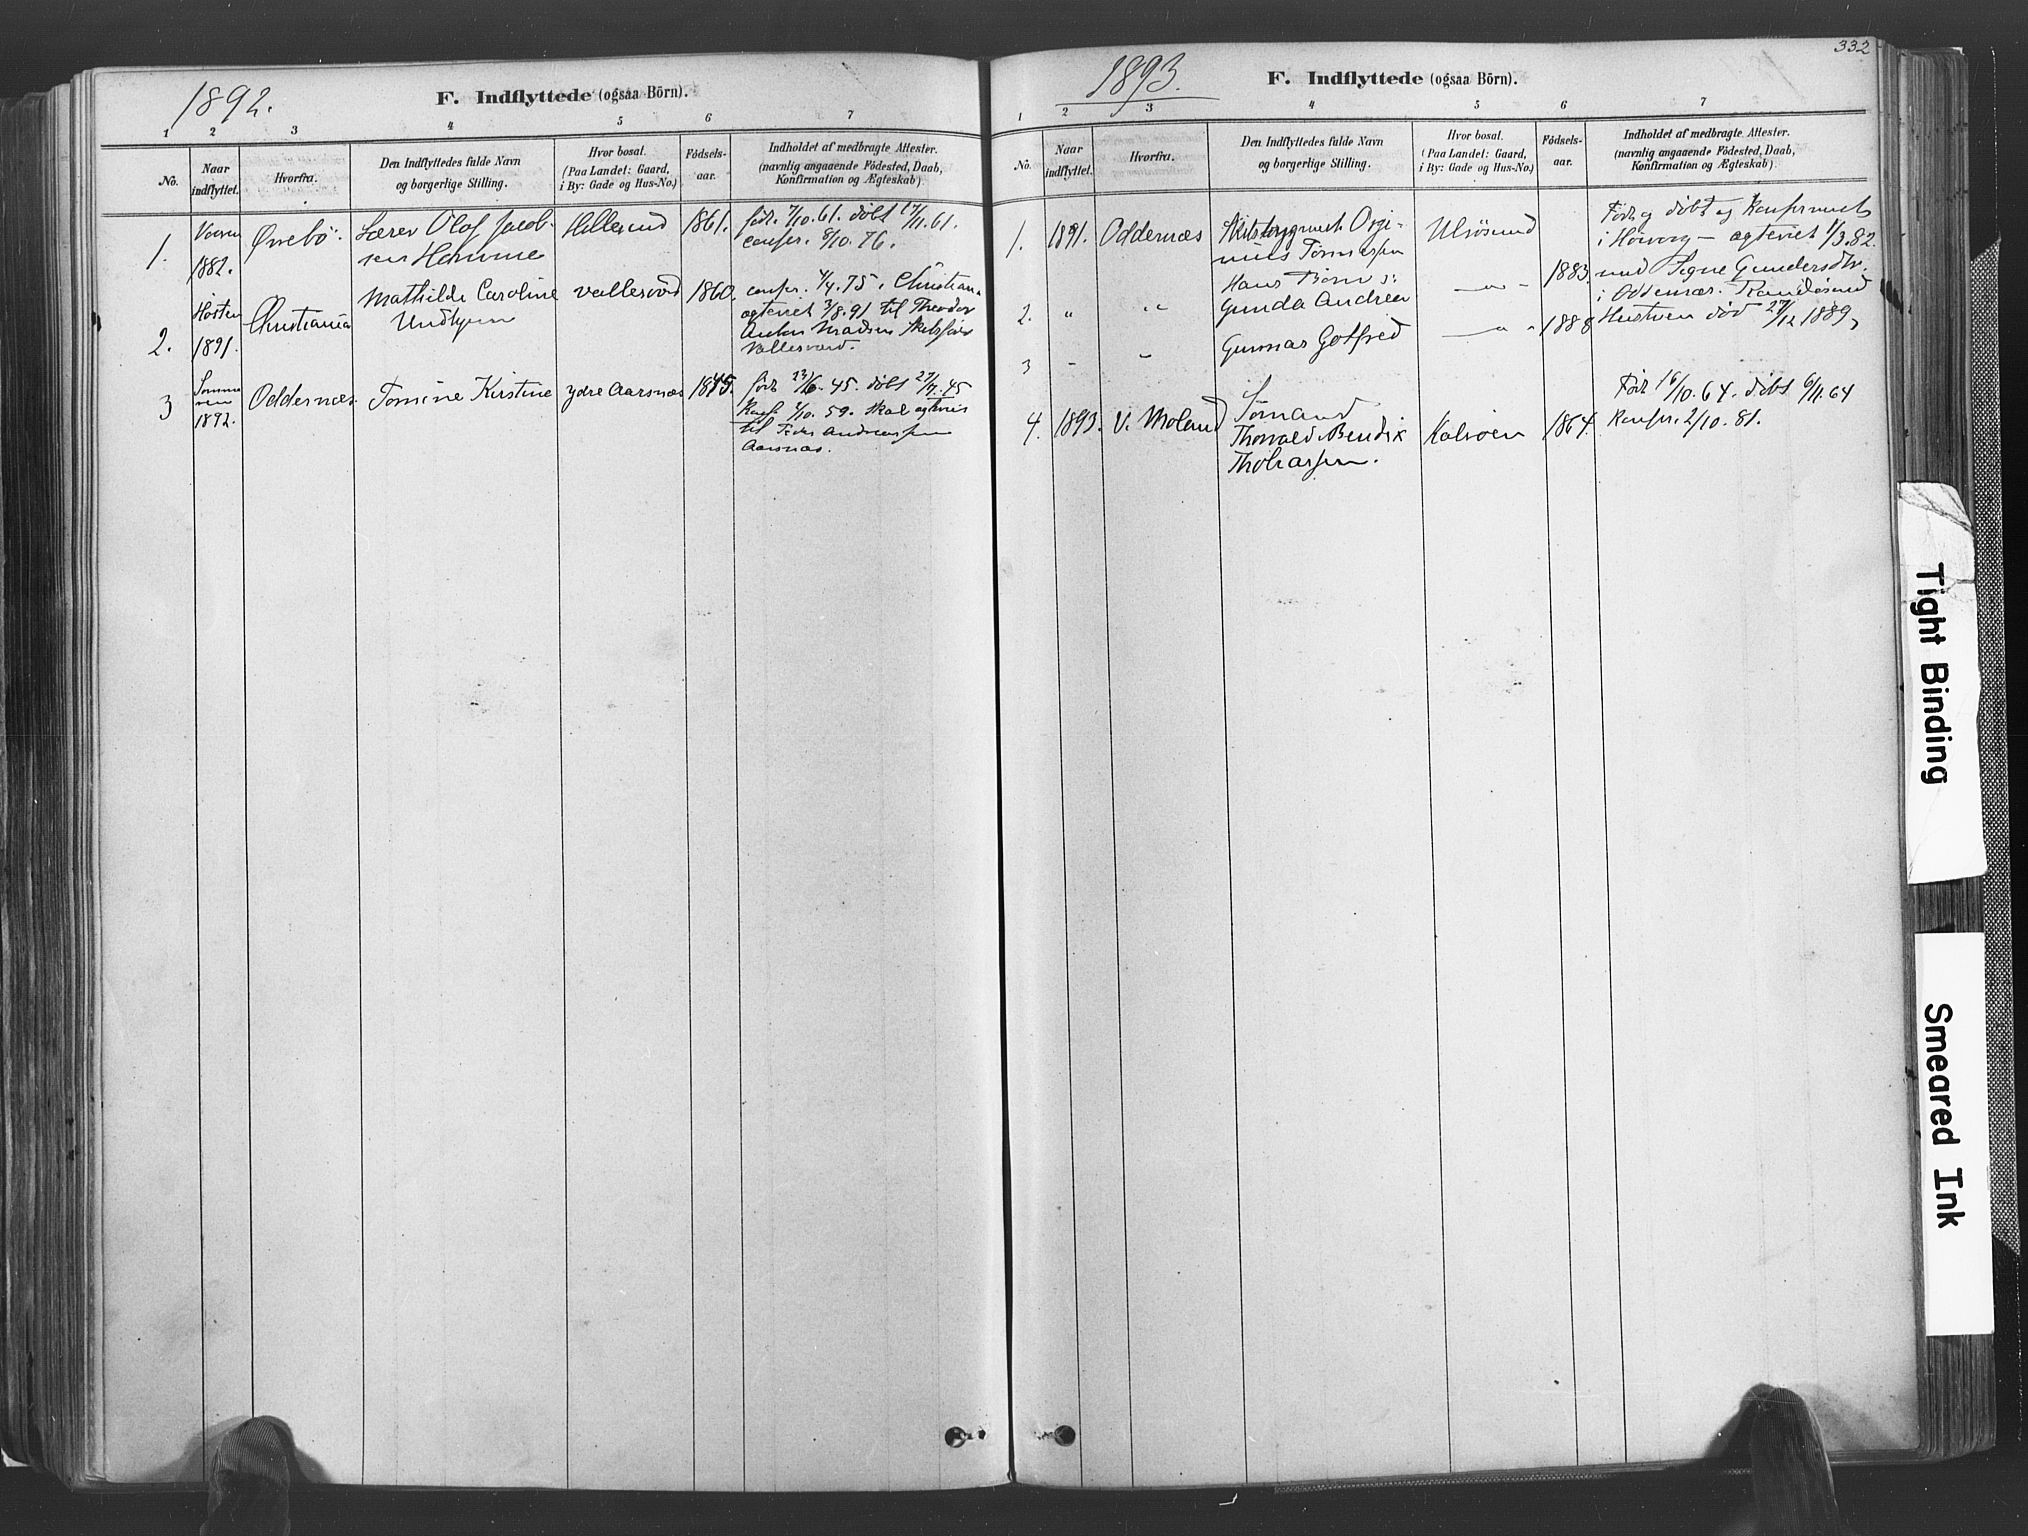 1892.
F. Indflyttede (ogsaa Börn).
1 2 3 4 5 6 7
No.
Naar indflyttet.
Hvorfra.
Den Indflyttedes fulde Navn
og borgerlige Stilling.
Hvor bosat.
(Paa Landet: Gaard,
i By: Gade og Hus-No.)
Födsels-
aar.
Indholdet af medbragte Attester.
(navnlig angaaende Födested, Daab,
Konfirmation og Ægteskab)
1.
1882.
Øvrebö.
Lærer Olaf Jacob-
sen Homme
Hillesund
1861.
född. 7/10.61. döbt 17/11.61.
confir. 8/10.76.
2.
Høsten
1891.
Christiania
Mathilde Caroline
Vallesværd
1860.
confir. 4/4.75 i Christiania
egteviet 3/8.91 til Theodor
Anton Madsen
Vallesværd.
3
Sommeren
1892.
Oddernæs
Tomine Kirstine
Ydre Aarsnæs
1845.
född 23/6.45. döbt 27/7.45
Konf. 2/10.59. skal egtevies
til Peder Andreassen
Aarsnæs.
332
1893.
F. Indflyttede (ogsaa Börn).
1 2 3 4 5 6 7
No.
Naar
indflyttet.
Hvorfra.
Den Indflyttedes fulde Navn
og borgerlige Stilling.
Hvor bosat.
(Paa Landet: Gaard,
i By: Gade og Hus-No.)
Födsels-
aar.
Indholdet af medbragte Attester.
(navnlig angaaende Födested, Daab,
Konfirmation og Ægteskab)
1.
1891.
Oddernæs
Ulvösund
Hans Börn:
Født og döbt og Konfirmeret
i Hövaag — egteviet 1/3.82.
med Signe Gundersdtr.
i Oddernæs. Randösund
Hustruen död 27/12 1889
2.
" "
Gunda Andrea
— " —
1883
3
- "
Gunnar Gotfred
— " —
1888
4.
1893.
V. Moland
Sömand
Thorvald Bendix
Kalvöen
1864.
Född 16/10.64. döbt 6/11.64
Konfir. 2/10.81.
Tight Binding
Smeared Ink